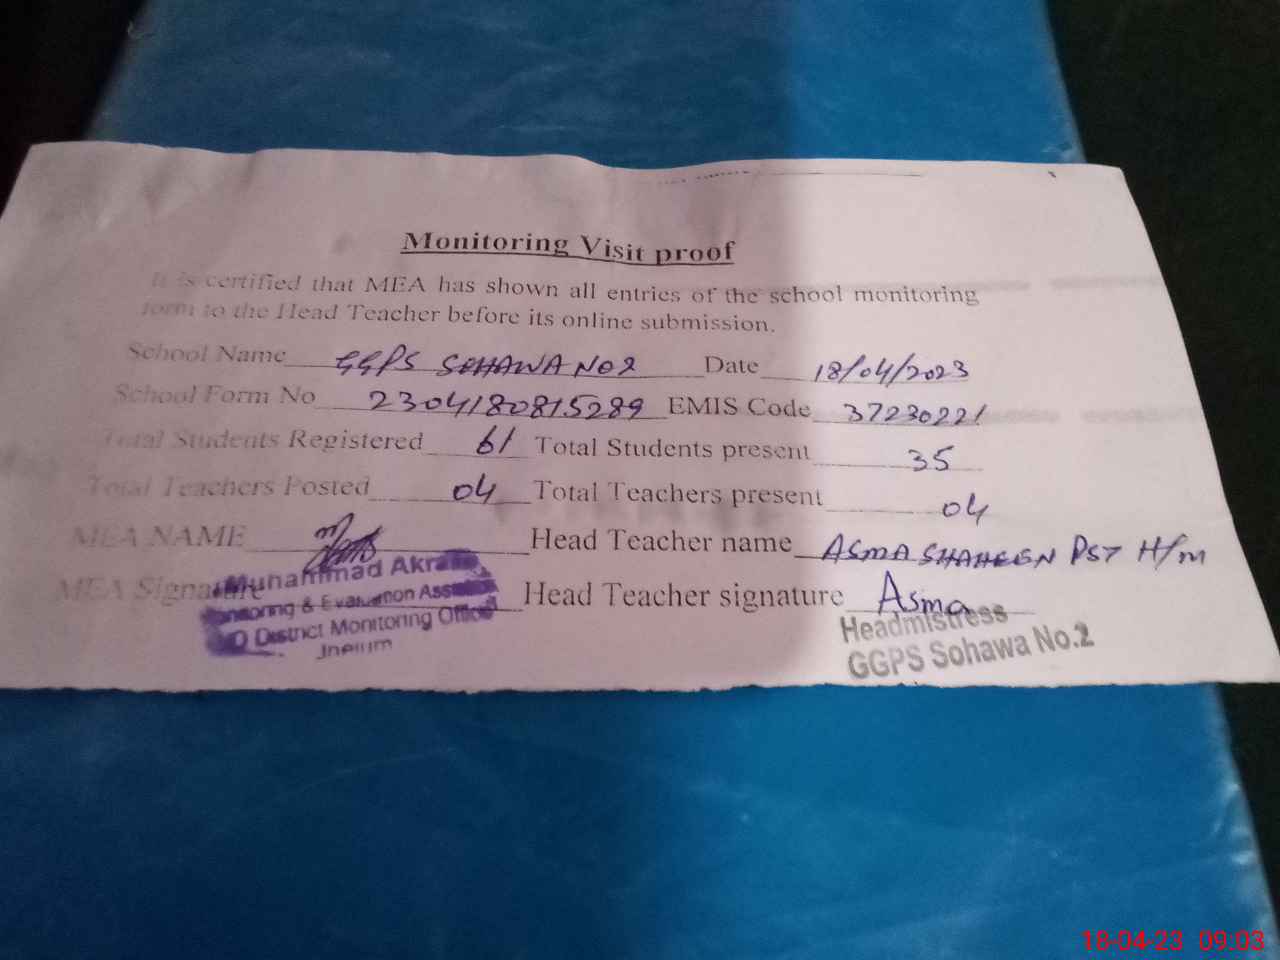 Monitoring Visit proof
It is certified that MEA has shown all entries of the school monitoring
form to the Head Teacher before its online submission.
School Name GGPS SOHAWA NO 2 Date 18/04/2023
School Form No 2304180815289 EMIS Code 37230221
Total Students Registered 61 Total Students present 35
Total Teachers Posted 04 Total Teachers present 04
MEA NAME Head Teacher name ASMA SHAHEEN PST H/m
MEA Signature Head Teacher signature Asma
Muhammad Akram
Monitoring & Evaluation
District Monitoring Office
Jhelum
Headmistress
GGPS Sohawa No.2
18-04-23 09.03